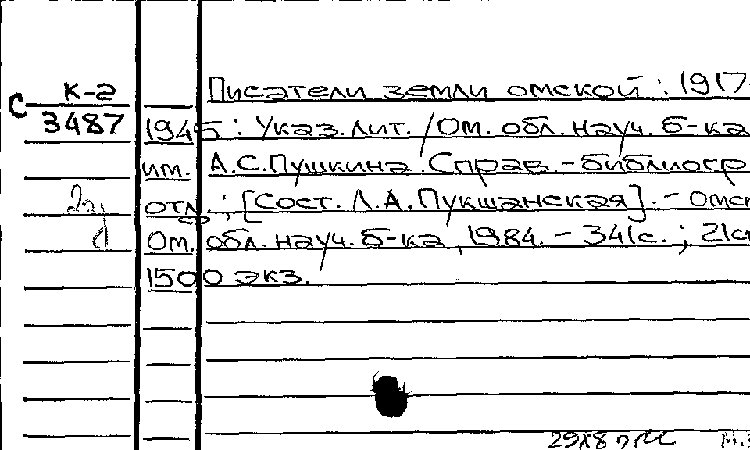 К-а
Писатели земли омской : 1917
С
3487
1945 : Указ. лит. / Ом. обл. науч. б-ка
им. А.С.Пушкина. Справ.-библиогр
отд. ; [Сост. Л.А.Пукшанская]. – Омск
Ом. обл. науч. б-ка, 1984. – 341с. ; 21см
1500 экз.